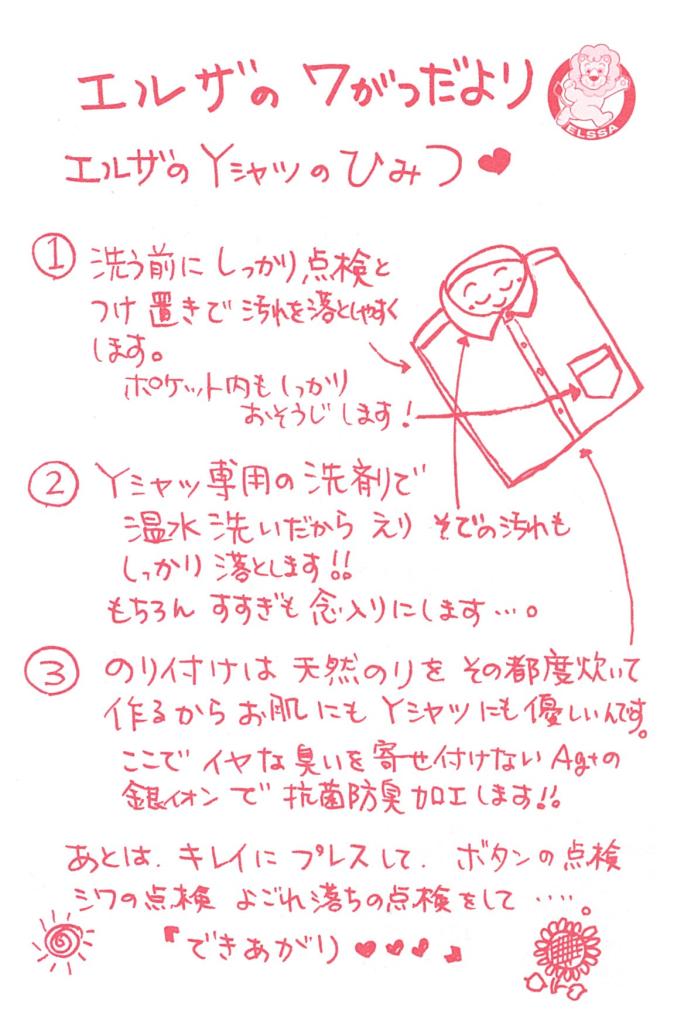 エルザの 7がつだより
ELSSA
エルザのYシャツのひみつ♥
① 洗う前に しっかり点検と
つけ置きで 汚れを落としやすく
します。
ポケット内もしっかり
おそうじします!
② Yシャツ専用の洗剤で
温水洗いだから えり そでの汚れも
しっかり落とします!!
もちろん すすぎも 念入りにします…。
③ のり付けは 天然のりを その都度炊いて
作るから お肌にも Yシャツにも 優しいんです。
ここで イヤな臭いを寄せ付けない Ag+の
銀イオンで 抗菌防臭加工します!!
あとは、キレイに プレスして、ボタンの点検
シワの点検 よごれ落ちの点検をして ‥‥。
『できあがり♥♥♥♥』